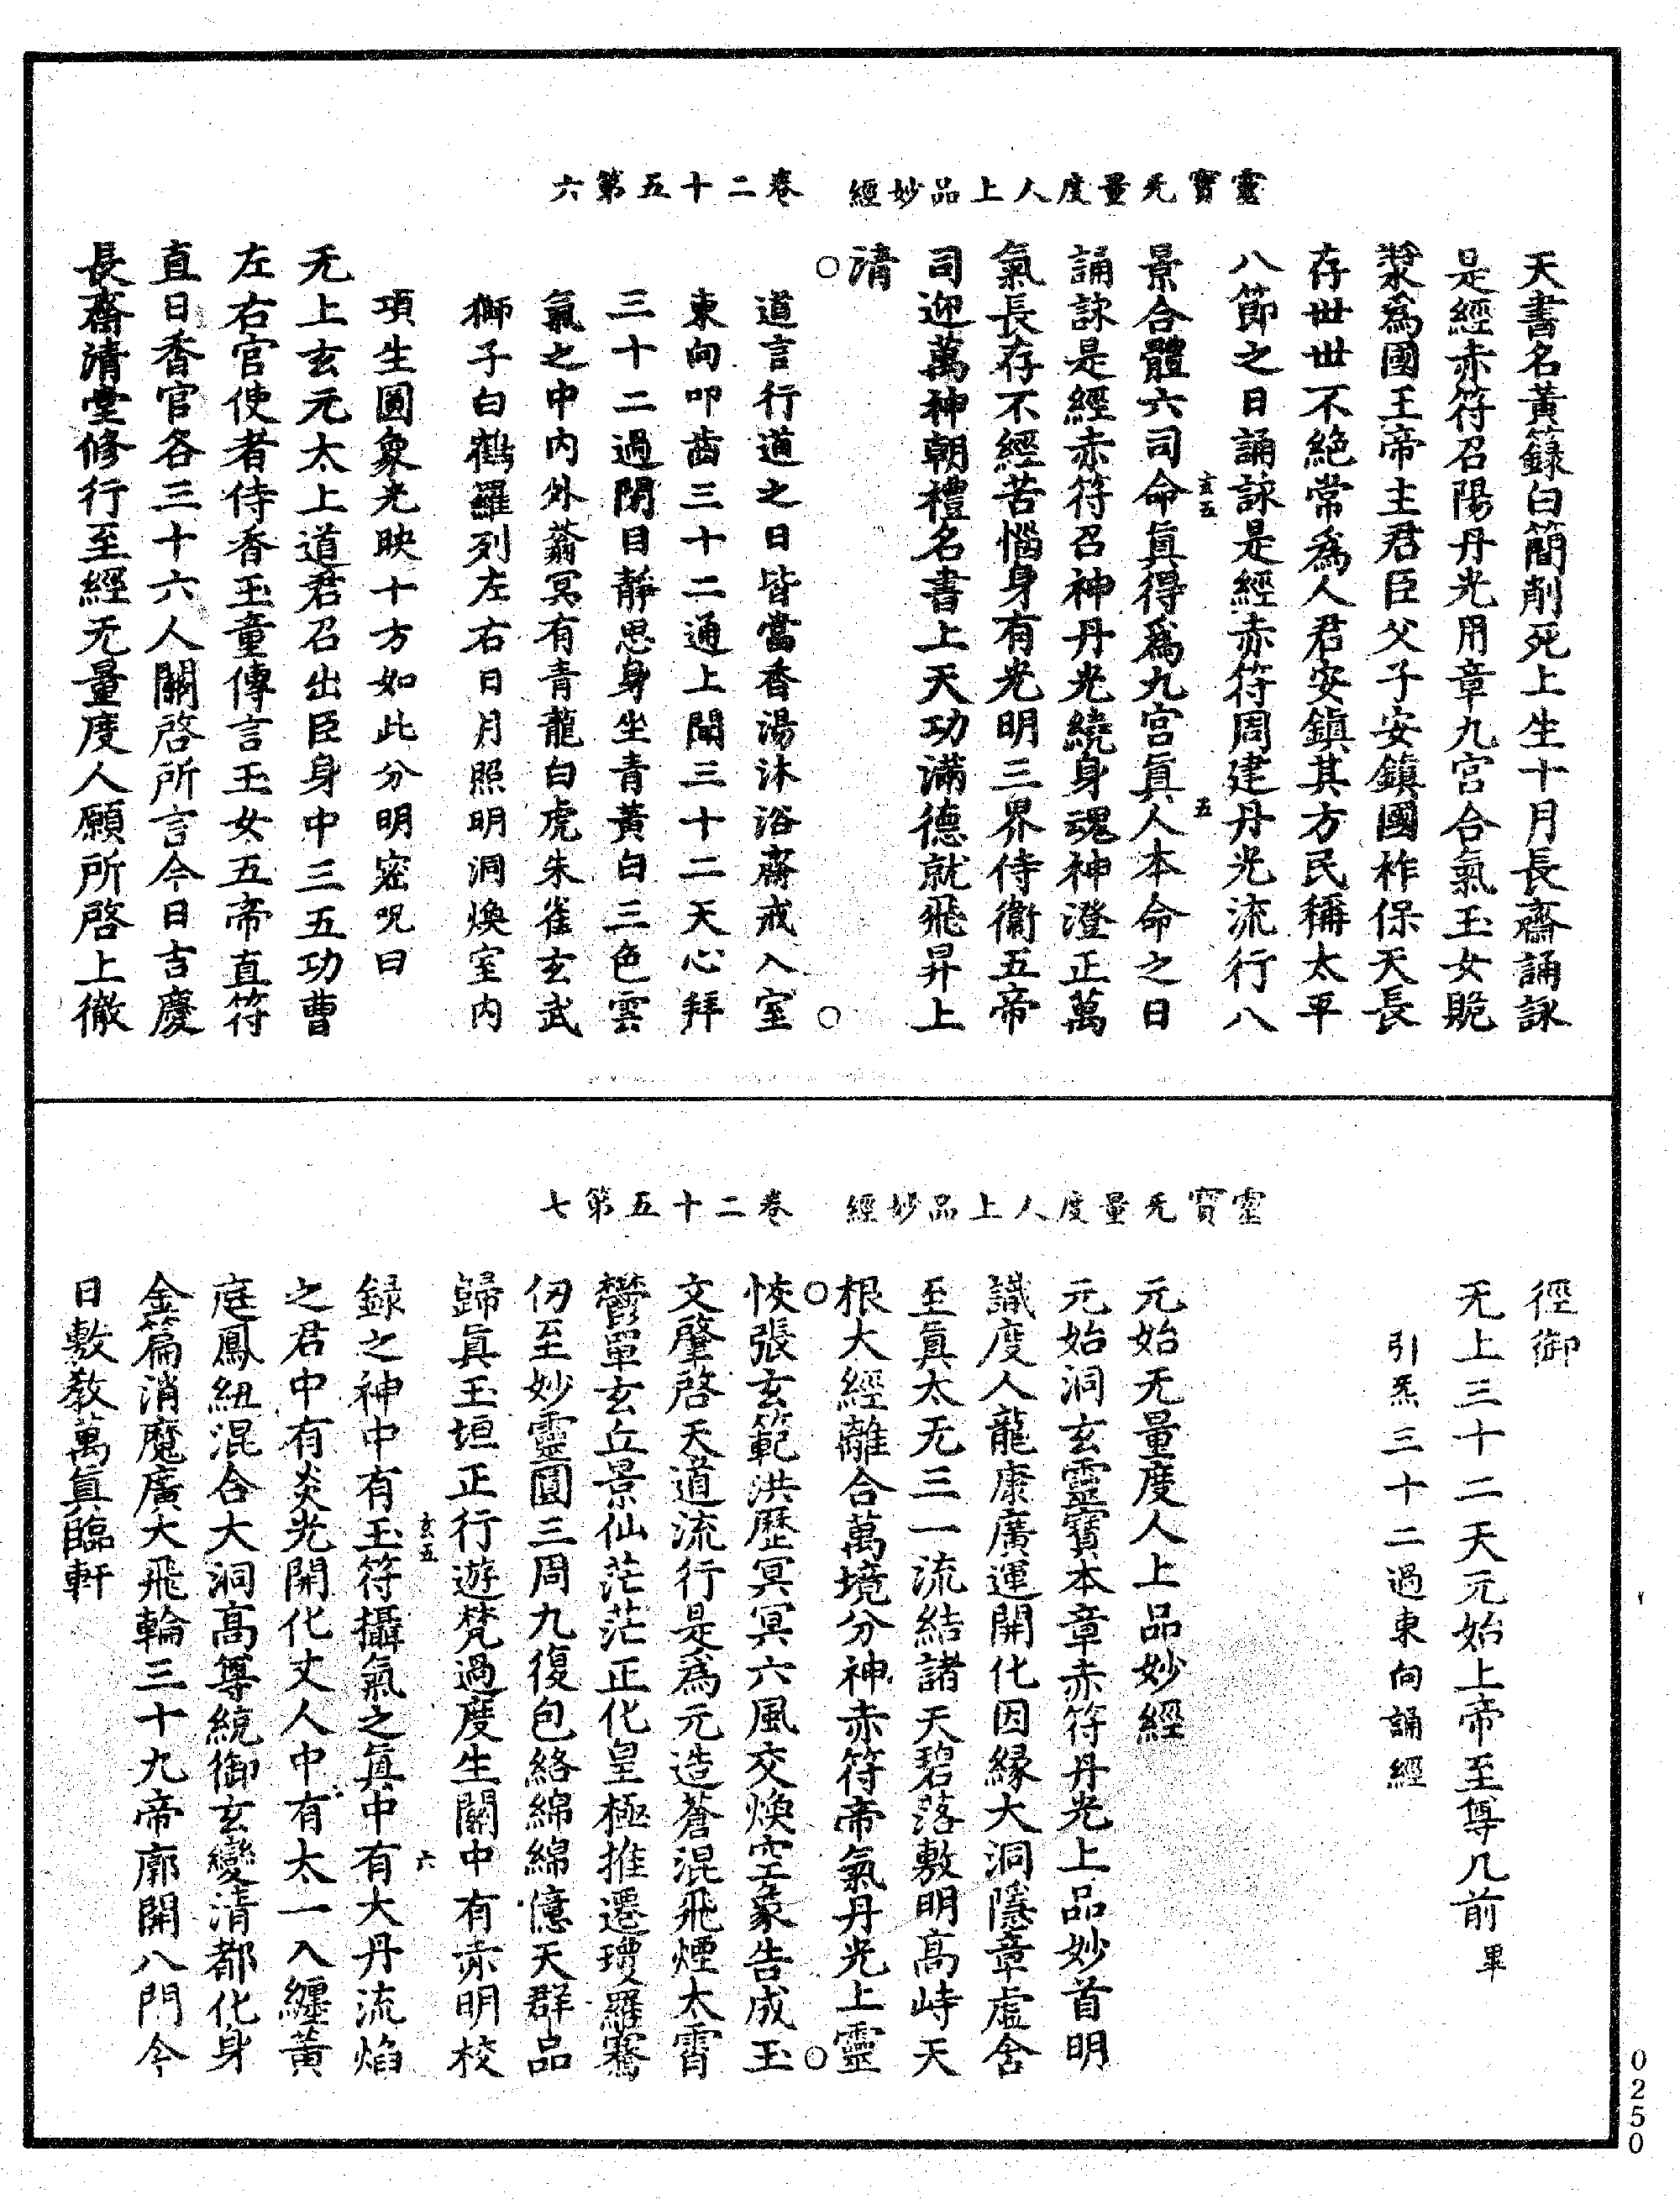 靈寶无量度人上品妙經　卷二十五第六
天書名黃籙白簡削死上生十月長齋誦詠
是經赤符召陽丹光用章九宮合氣玉女貺
漿為國王帝主君臣父子安鎮國祚保天長
存世世不絕常為人君安鎮其方民稱太平
八節之日誦詠是經赤符周建丹光流行八
景合體六司命眞得爲九宮眞人本命之日
玄五
五
誦詠是經赤符召神丹光繞身魂神澄正萬
氣長存不經苦惱身有光明三界侍衛五帝
司迎萬神朝禮名書上天功滿德就飛昇上
清
道言行道之日皆當香湯沐浴齋戒入室
東向叩齒三十二通上聞三十二天心拜
三十二過閉目靜思身坐青黃白三色雲
氣之中內外蓊冥有青龍白虎朱雀玄武
獅子白鶴羅列左右日月照明洞煥室內
項生圓象光映十方如此分明密呪曰
无上玄元太上道君召出臣身中三五功曹
左右官使者侍香玉童傳言玉女五帝直符
直日香官各三十六人關啓所言今日吉慶
長齋清堂修行至經无量度人願所啓上徹
靈寶无量度人上品妙經　卷二十五第七
徑御
无上三十二天元始上帝至尊几前畢
引炁三十二過東向誦經
元始无量度人上品妙經
元始洞玄靈寶本章赤符丹光上品妙首明
識度人龍康廣運開化因緣大洞隱章虛含
至眞太无三一流結諸天碧落敷明高峙天
根大經離合萬境分神赤符帝氣丹光上靈
恢張玄範洪歷冥冥六風交煥空象告成玉
文肇啓天道流行是為元造蒼混飛煙太霄
鬱單玄丘景仙茫茫正化皇極推遷瓊羅騫
仞至妙靈圓三周九復包絡綿綿億天群品
歸眞玉垣正行遊梵過度生關中有赤明校
錄之神中有玉符攝氣之眞中有大丹流焰
玄五
六
之君中有炎光開化丈人中有太一入纏黃
庭鳳紐混合大洞高尊統御玄變清都化身
金篇消魔廣大飛輪三十九帝廓開八門今
日敷教萬眞臨軒
0250